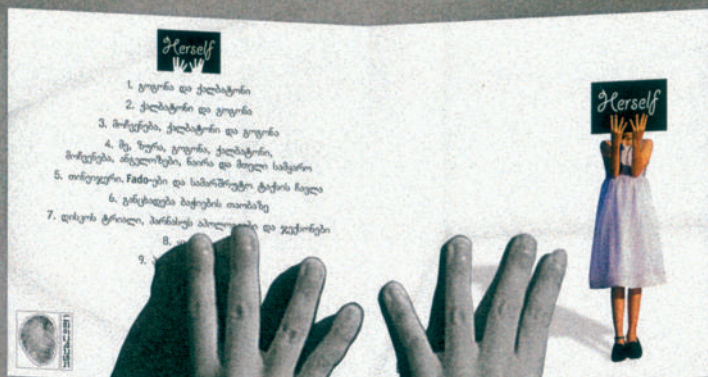 Herself
1. გოგონა და ქალბატონი
2. ქალბატონი და გოგონა
3. მოჩვენება, ქალბატონი და გოგონა
4. მე, ზურა, გოგონა, ქალბატონი,
მოჩვენება, ანგელოზები, ნაირა და მთელი სამყარო
5. თინეიჯერი, Fado-ები და სამარშრუტო ტაქსის ჩავლა
6. განცხადება ბაჭიების თაობაზე
7. დისკოს ტრიალი, პარნასუს და ჯექსონები
8.
9.
Herself